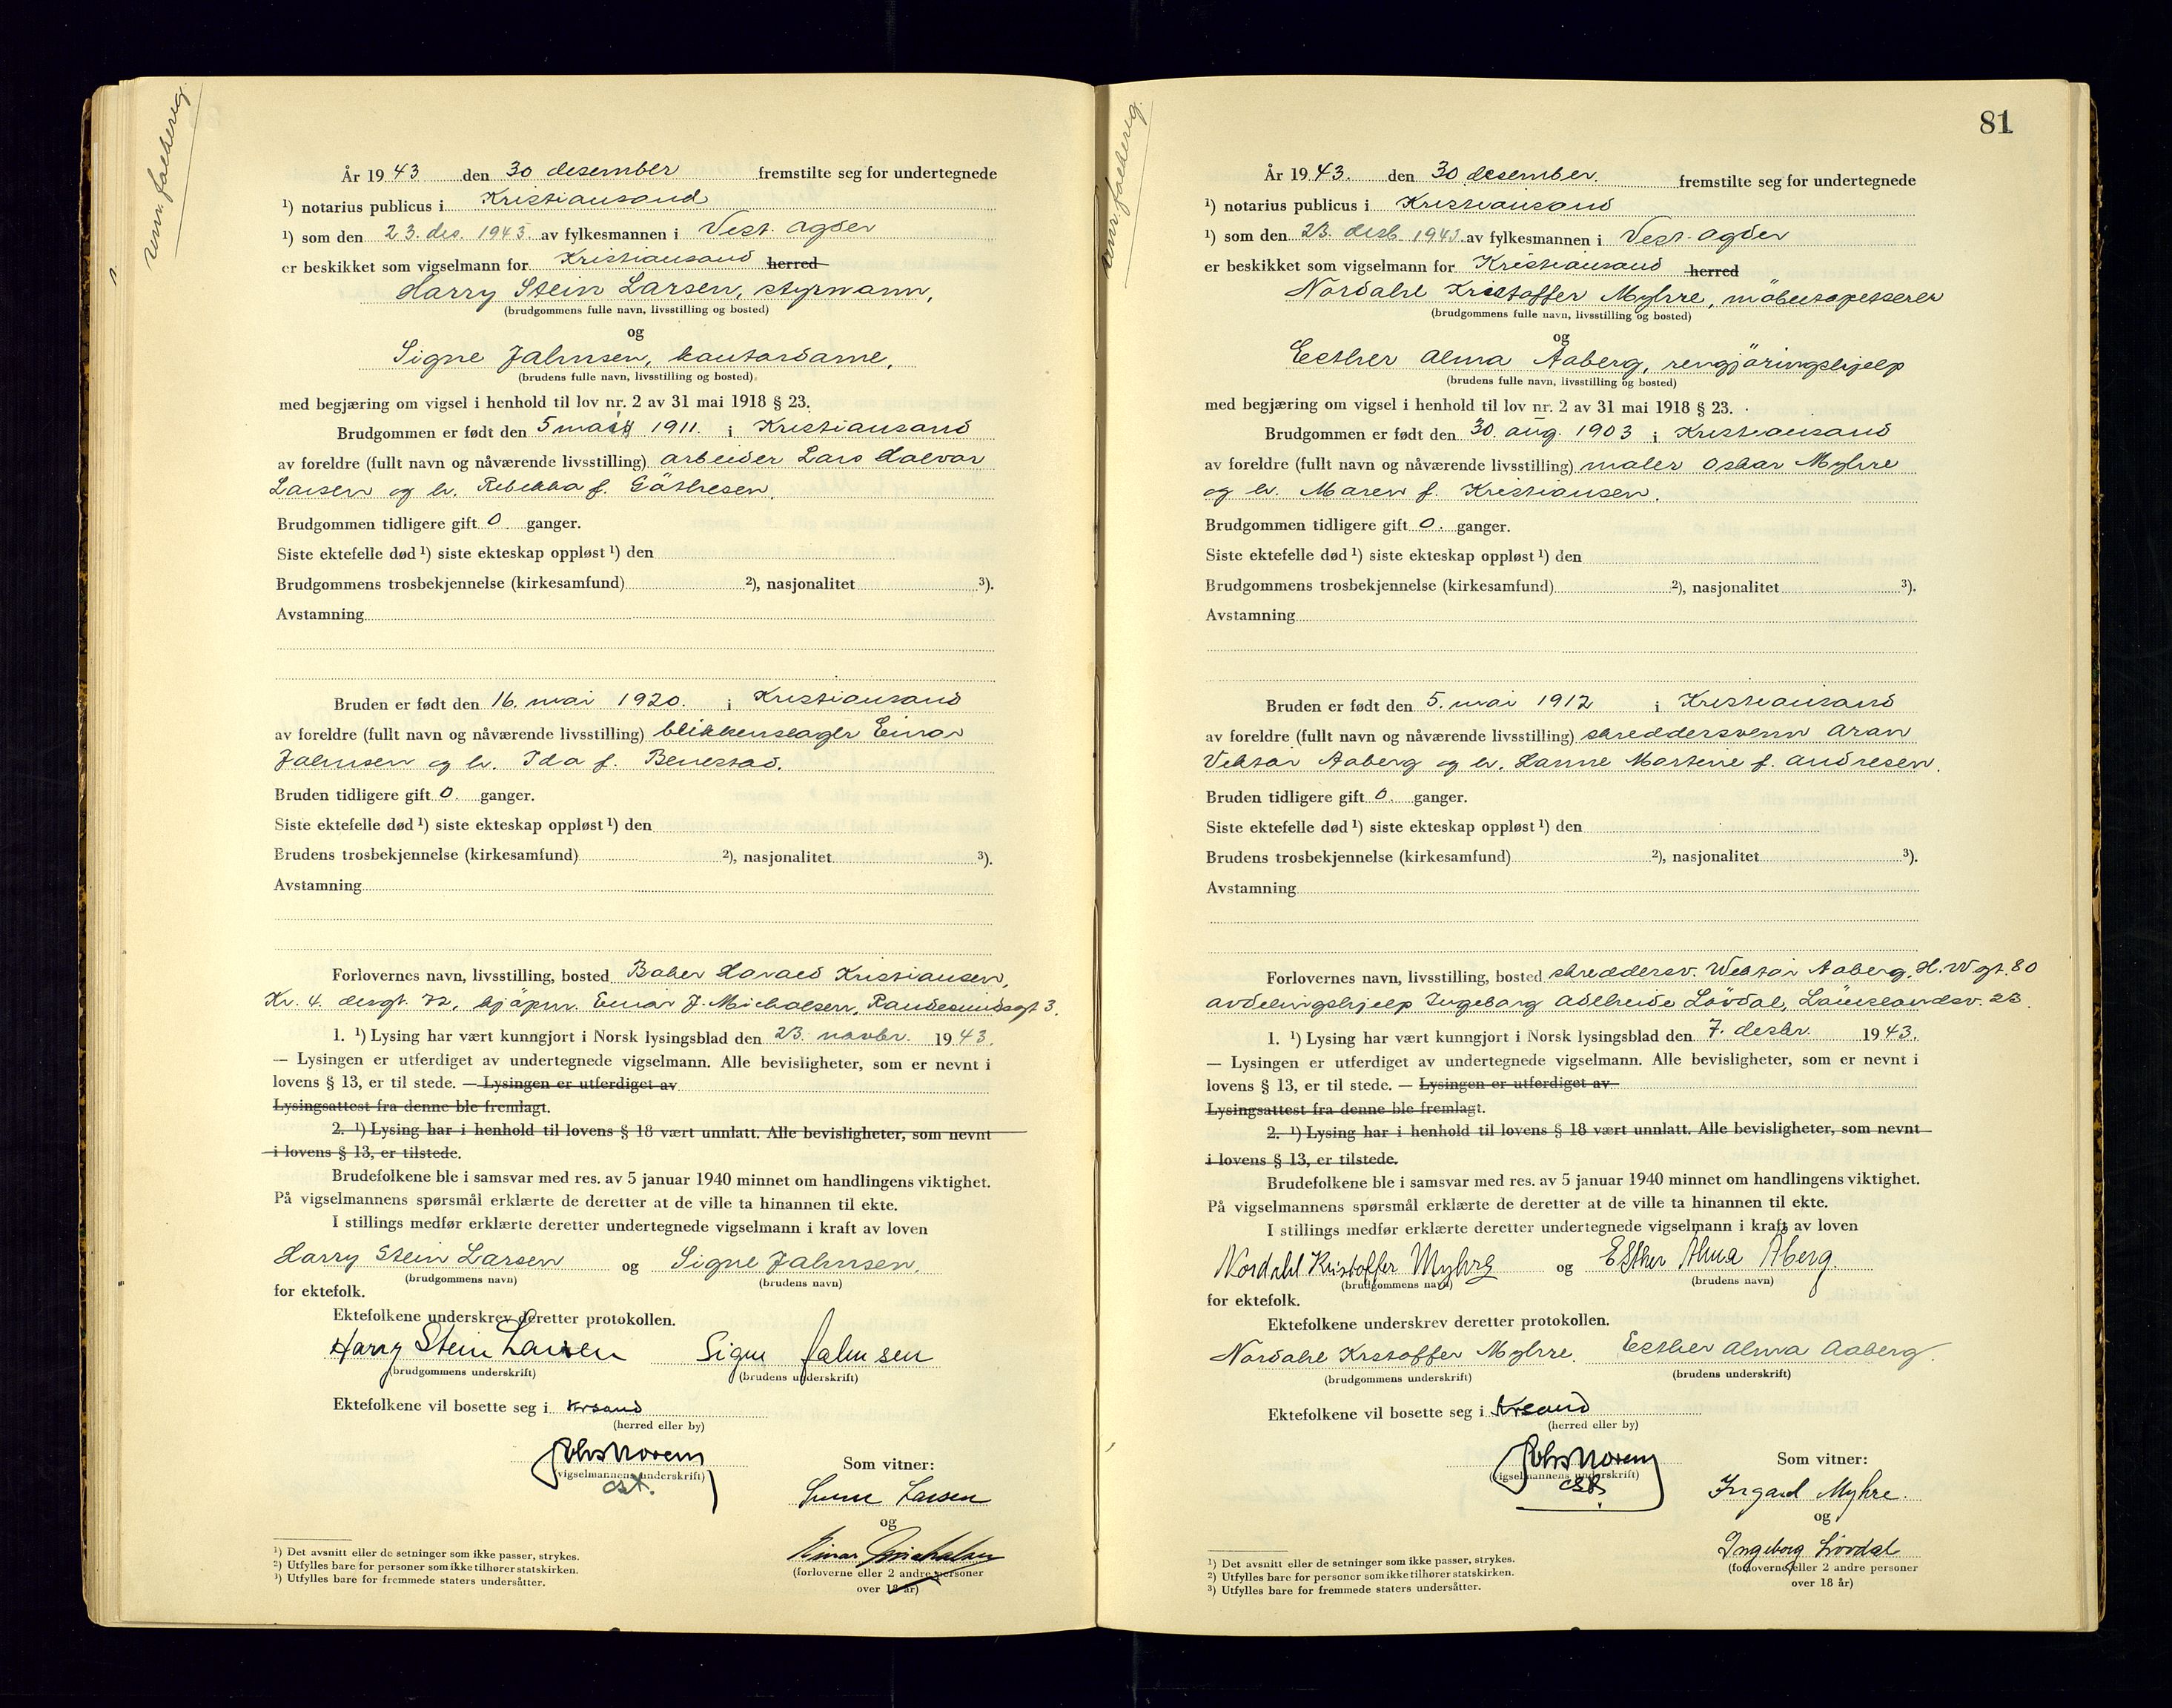 År 1943 den 30 desember fremstilte seg for undertegnede
¹) notarius publicus i Kristiansand
¹) som den 23. des. 1943. av fylkesmannen i Vest. Agder
er beskikket som vigselmann for Kristiansand herred
Harry Stein Larsen, styrmann,
(brudgommens fulle navn, livsstilling og bosted)
og
Signe Jahnsen, kontordame,
(brudens fulle navn, livsstilling og bosted)
med begjæring om vigsel i henhold til lov nr. 2 av 31 mai 1918 § 23.
Brudgommen er født den 5 1911. i Kristiansand
av foreldre (fullt navn og nåværende livsstilling) arbeider Lars Halvor
Larsen og h. Rebekka f. Göthesen.
Brudgommen tidligere gift 0 ganger.
Siste ektefelle død ¹) siste ekteskap oppløst ¹) den
Brudgommens trosbekjennelse (kirkesamfund) ²), nasjonalitet ³).
Avstamning
Bruden er født den 16. mai 1920. i Kristiansand
av foreldre (fullt navn og nåværende livsstilling) blikkenslager Einar
Jahnsen og h. Ida f. Benestad.
Bruden tidligere gift 0. ganger.
Siste ektefelle død ¹) siste ekteskap oppløst ¹) den
Brudens trosbekjennelse (kirkesamfund) ²), nasjonalitet ³).
Avstamning
Forlovernes navn, livsstilling, bosted Baker Harald Kristiansen,
Kr. 4. desgt. 72, kjöpm. Einar J. Michalsen, Randesundsgt 3.
1. ¹) Lysing har vært kunngjort i Norsk lysingsblad den 23. novbr. 1943.
— Lysingen er utferdiget av undertegnede vigselmann. Alle bevisligheter, som er nevnt i
lovens § 13, er til stede. — Lysingen er utferdiget av
Lysingsattest fra denne ble fremlagt.
2. ¹) Lysing har i henhold til lovens § 18 vært unnlatt. Alle bevisligheter, som nevnt
i lovens § 13, er tilstede.
Brudefolkene ble i samsvar med res. av 5 januar 1940 minnet om handlingens viktighet.
På vigselmannens spørsmål erklærte de deretter at de ville ta hinannen til ekte.
I stillings medfør erklærte deretter undertegnede vigselmann i kraft av loven
Harry Stein Larsen og Signe Jahnsen.
(brudgommens navn) (brudens navn)
for ektefolk.
Ektefolkene underskrev deretter protokollen.
Harry Stein Larsen Signe Jahnsen
(brudgommens underskrift) (brudens underskrift)
Ektefolkene vil bosette seg i Krsand
(herred eller by)
Johs Noren
(vigselmannens underskrift)
cst.
Som vitner:
Larsen
og
Einar Michalsen
(forloverne eller 2 andre personer
over 18 år)
¹) Det avsnitt eller de setninger som ikke passer, strykes.
²) Utfylles bare for personer som ikke tilhører statskirken.
³) Utfylles bare for fremmede staters undersåtter.
81
År 1943. den 30 desember. fremstilte seg for undertegnede
¹) notarius publicus i Kristiansand
¹) som den 23. desb. 1943. av fylkesmannen i Vest-Agder
er beskikket som vigselmann for Kristiansand herred
Nordahl Kristoffer Myhre, möbeltapetserer
(brudgommens fulle navn, livsstilling og bosted)
og
Esther Alma Aaberg, rengjöringshjelp
(brudens fulle navn, livsstilling og bosted)
med begjæring om vigsel i henhold til lov nr. 2 av 31 mai 1918 § 23.
Brudgommen er født den 30. aug. 1903 i Kristiansand
av foreldre (fullt navn og nåværende livsstilling) maler Oskar Myhre
og h. Maren f. Kristiansen.
Brudgommen tidligere gift 0. ganger.
Siste ektefelle død ¹) siste ekteskap oppløst ¹) den
Brudgommens trosbekjennelse (kirkesamfund) ²), nasjonalitet ³).
Avstamning
Bruden er født den 5. mai 1912 i Kristiansand
av foreldre (fullt navn og nåværende livsstilling) skreddersvenn Aran
Viktor Aaberg og h. Hanne Martine f. Andresen.
Bruden tidligere gift 0. ganger.
Siste ektefelle død ¹) siste ekteskap oppløst ¹) den
Brudens trosbekjennelse (kirkesamfund) ²), nasjonalitet ³).
Avstamning
Forlovernes navn, livsstilling, bosted skreddersv. Viktor Aaberg, H. W gt. 80
avdelingshjelp Ingeborg Adelheide Lövdal, 23.
1. ¹) Lysing har vært kunngjort i Norsk lysingsblad den 7. desbr. 1943.
— Lysingen er utferdiget av undertegnede vigselmann. Alle bevisligheter, som er nevnt i
lovens § 13, er til stede. — Lysingen er utferdiget av
Lysingsattest fra denne ble fremlagt.
2. ¹) Lysing har i henhold til lovens § 18 vært unnlatt. Alle bevisligheter, som nevnt
i lovens § 13, er tilstede.
Brudefolkene ble i samsvar med res. av 5 januar 1940 minnet om handlingens viktighet.
På vigselmannens spørsmål erklærte de deretter at de ville ta hinannen til ekte.
I stillings medfør erklærte deretter undertegnede vigselmann i kraft av loven
Nordahl Kristoffer Myhre og Esther Alma Åberg.
(brudgommens navn) (brudens navn)
for ektefolk.
Ektefolkene underskrev deretter protokollen.
Nordahl Krstoffer Myhre. Esther Alma Aaberg.
(brudgommens underskrift) (brudens underskrift)
Ektefolkene vil bosette seg i Krsand
(herred eller by)
Johs Noren
(vigselmannens underskrift)
cst.
Som vitner:
Ingard Myhre.
og
Ingeborg Lövdal
(forloverne eller 2 andre personer
over 18 år)
¹) Det avsnitt eller de setninger som ikke passer, strykes.
²) Utfylles bare for personer som ikke tilhører statskirken.
³) Utfylles bare for fremmede staters undersåtter.